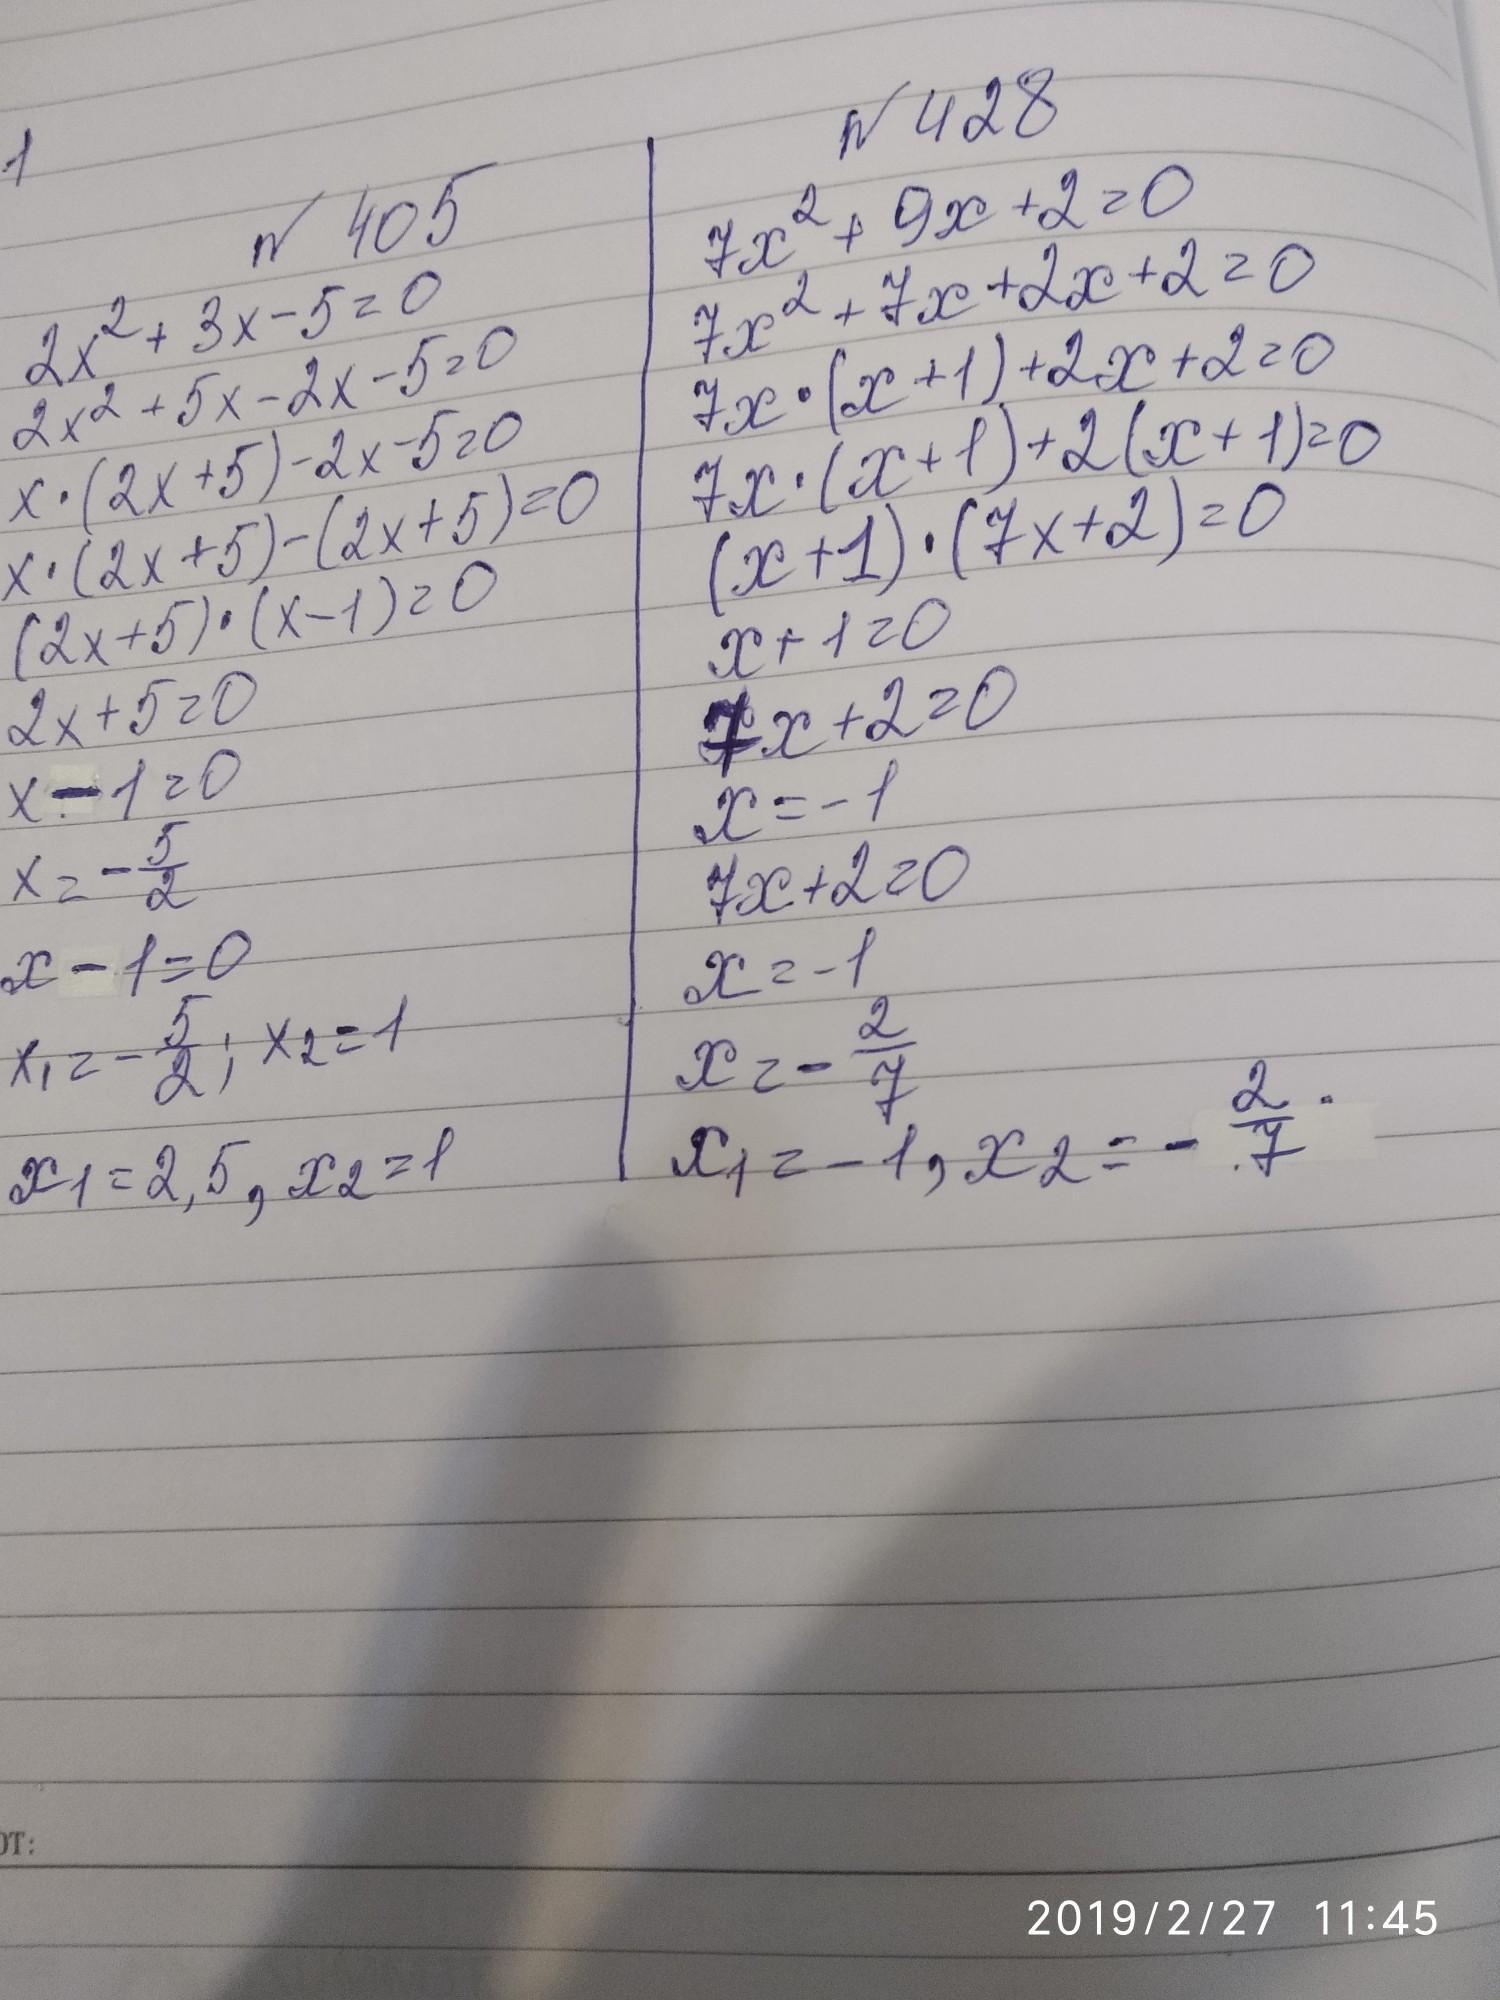 1
№ 405
2x² + 3x - 5 = 0
2x² + 5x - 2x - 5 = 0
x · (2x + 5) - 2x - 5 = 0
x · (2x + 5) - (2x + 5) = 0
(2x + 5) · (x - 1) = 0
2x + 5 = 0
x - 1 = 0
x = - 5/2
x - 1 = 0
x₁ = - 5/2 ; x₂ = 1
x₁ = 2,5, x₂ = 1
№ 428
7x² + 9x + 2 = 0
7x² + 7x + 2x + 2 = 0
7x · (x + 1) + 2x + 2 = 0
7x · (x + 1) + 2(x + 1) = 0
(x + 1) · (7x + 2) = 0
x + 1 = 0
7x + 2 = 0
x = - 1
7x + 2 = 0
x = - 1
x = - 2/7
x₁ = - 1, x₂ = - 2/7.
ОТ:
2019/2/27 11:45